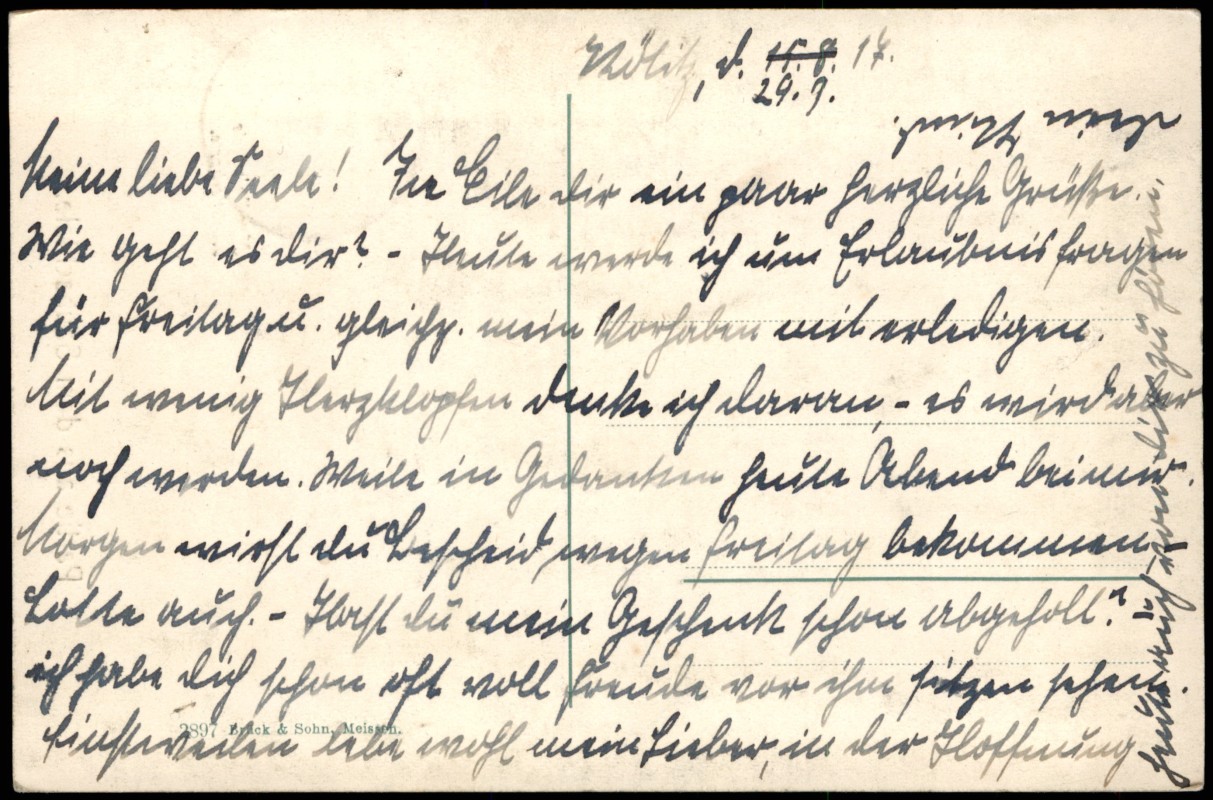 Kölitz, d. 11. 8. 17.
29. 9.
Meine liebe Seele! In Eile dir ein paar herzliche Grüße.
Wie geht es dir? - Heute werde ich um Erlaubnis fragen
für Freitag u. gleichz. mein Vorhaben mit erledigen.
Mit wenig Herzklopfen denke ich daran, - es wird aber
noch werden. Weile in Gedanken heute Abend bei mir.
Morgen wirst du Bescheid wegen Freitag bekommen -
Lotte auch. - Hast du mein Geschenk schon abgeholt? -
ich habe dich schon oft voll Freude vor ihm sitzen sehen.
Einstweilen lebe wohl mein Lieber, in der Hoffnung
heute auch von dir zu hören.
Dein
2897 Brück & Sohn, Meissen.